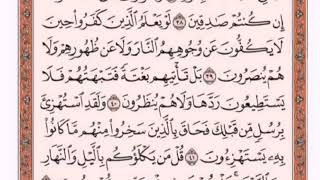 إِن كُنتُمْ صَٰدِقِينَ ٣٨ لَوْ يَعْلَمُ ٱلَّذِينَ كَفَرُوا۟ حِينَ
لَا يَكُفُّونَ عَن وُجُوهِهِمُ ٱلنَّارَ وَلَا عَن ظُهُورِهِمْ وَلَا
هُمْ يُنصَرُونَ ٣٩ بَلْ تَأْتِيهِم بَغْتَةً فَتَبْهَتُهُمْ فَلَا
يَسْتَطِيعُونَ رَدَّهَا وَلَا هُمْ يُنظَرُونَ ٤٠ وَلَقَدِ ٱسْتُهْزِئَ
بِرُسُلٍ مِّن قَبْلِكَ فَحَاقَ بِٱلَّذِينَ سَخِرُوا۟ مِنْهُم مَّا كَانُوا۟
بِهِۦ يَسْتَهْزِءُونَ ٤١ قُلْ مَن يَكْلَؤُكُم بِٱلَّيْلِ وَٱلنَّهَارِ